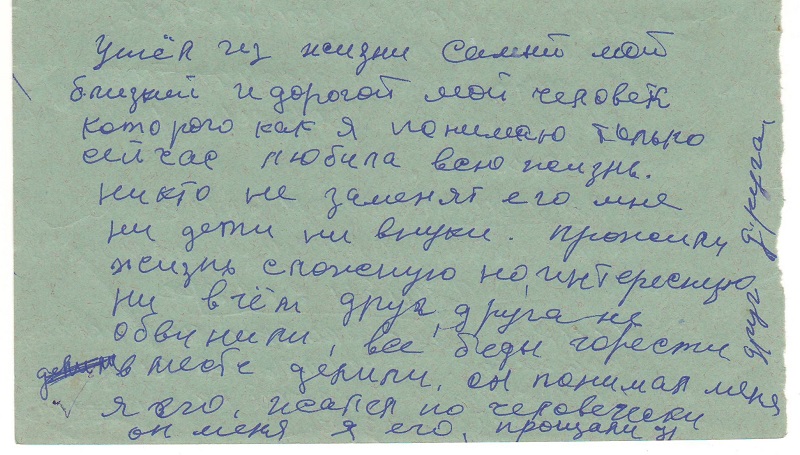 Ушёл из жизни самый мой
близкий и дорогой мой человек
которого как я понимаю только
сейчас любила всю жизнь.
никто не заменят его мне
ни дети ни внуки. прожили
жизнь сложную но, интересную
ни в чём друг друга не
обвинили, все беды горести
вместе делили, он понимал меня
я его, жалел по человечески
он меня я его, прощали
друг друга,